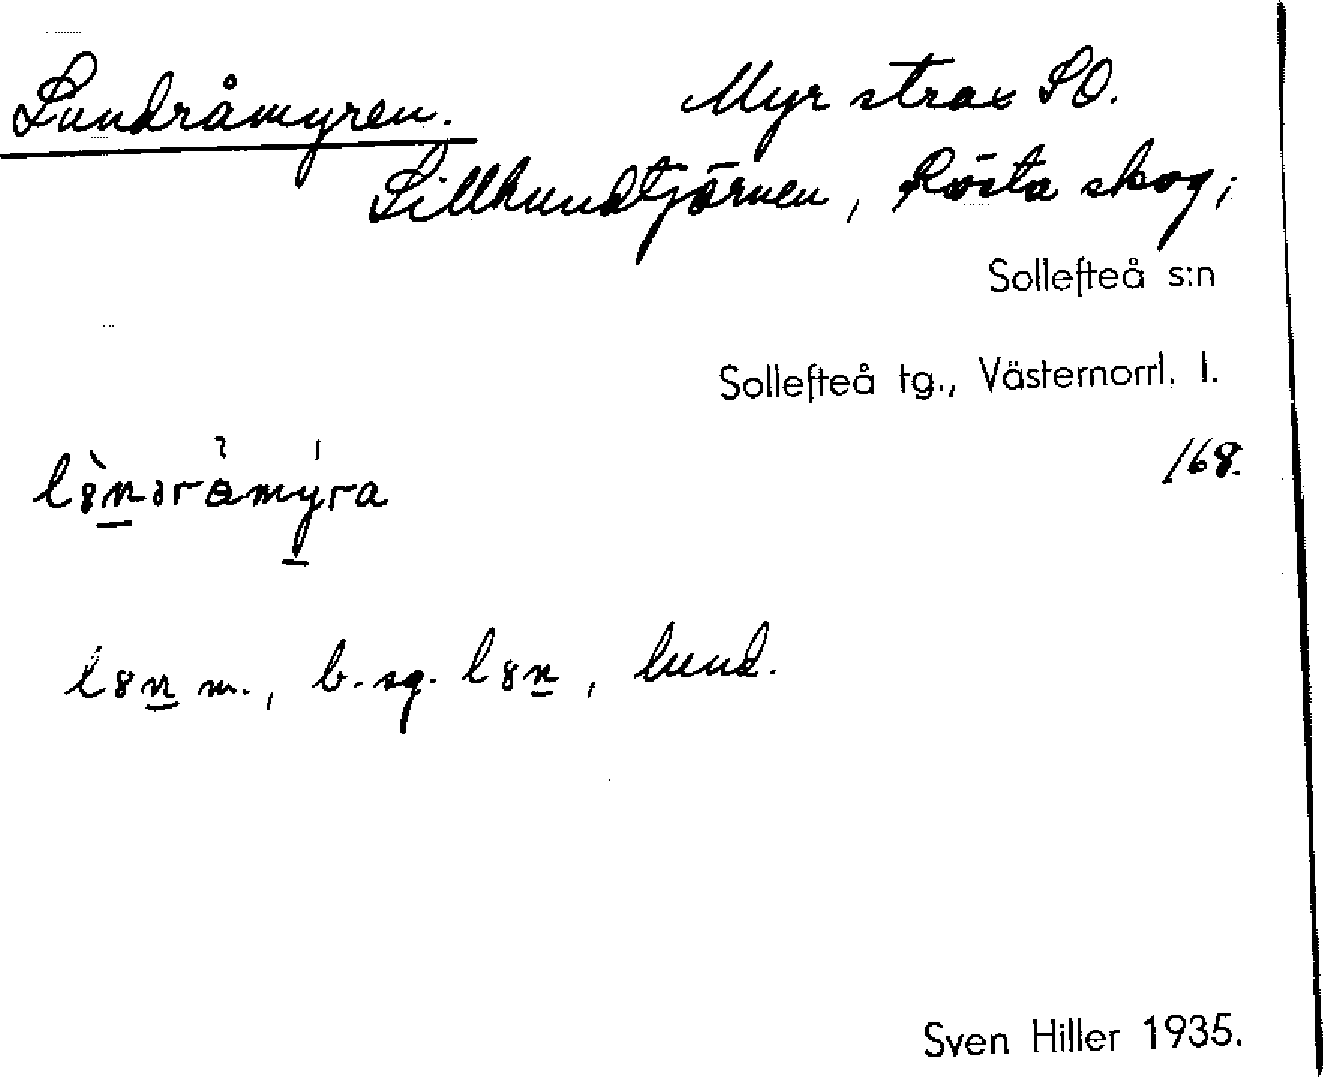 Lundråmyren. Myr strax SO.
Lillhundtjärnen, Rösta skog;
Sollefteå s:n
Sollefteå tg., Västernorrl. l.
168.
m., b. sg. , lund.
Sven Hiller 1935.